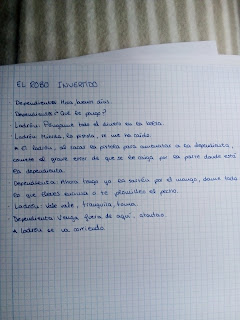 EL ROBO INVERTIDO
Dependienta: Hola, buenos días.
Dependienta: ¿Qué le pongo?
Ladrón: Póngame todo el dinero en la bolsa.
Ladrón: Mierda, la pistola, se me ha caído.
* El ladrón, al sacar la pistola para amenazar a la dependienta,
comete el grave error de que se le caiga por la parte donde está
la dependienta.
Dependienta: Ahora tengo yo la sartén por el mango, dame todo
lo que lleves encima o te
el pecho.
Ladrón: Vale vale, tranquila, toma.
Dependienta: Venga fuera de aquí, chalao.
* Ladrón se va corriendo.